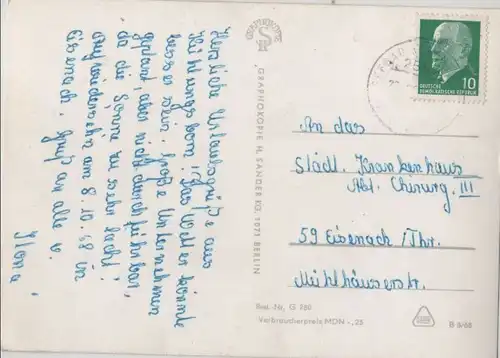 Herzliche Urlaubsgrüße aus
Kühlungsborn! Das Wetter könnte
besser sein. Große Unternehmen
geplant, aber nicht durchführbar,
da die Sonne zu sehr lacht!
Aufwiedersehn am 8.10.68 in
Eisenach. Gruß an alle v.
Ilona
GRAPHOKOPIE
"GRAPHOKOPIE" H. SANDER KG, 1071 BERLIN
DEUTSCHE
DEMOKRATISCHE REPUBLIK
10
An das
Städt. Krankenhaus
Abt. Chirurg. III
59 Eisenach/Thr.
Mühlhäuserstr.
Best.-Nr. G 380
Verbraucherpreis MDN -,25
B 9/68